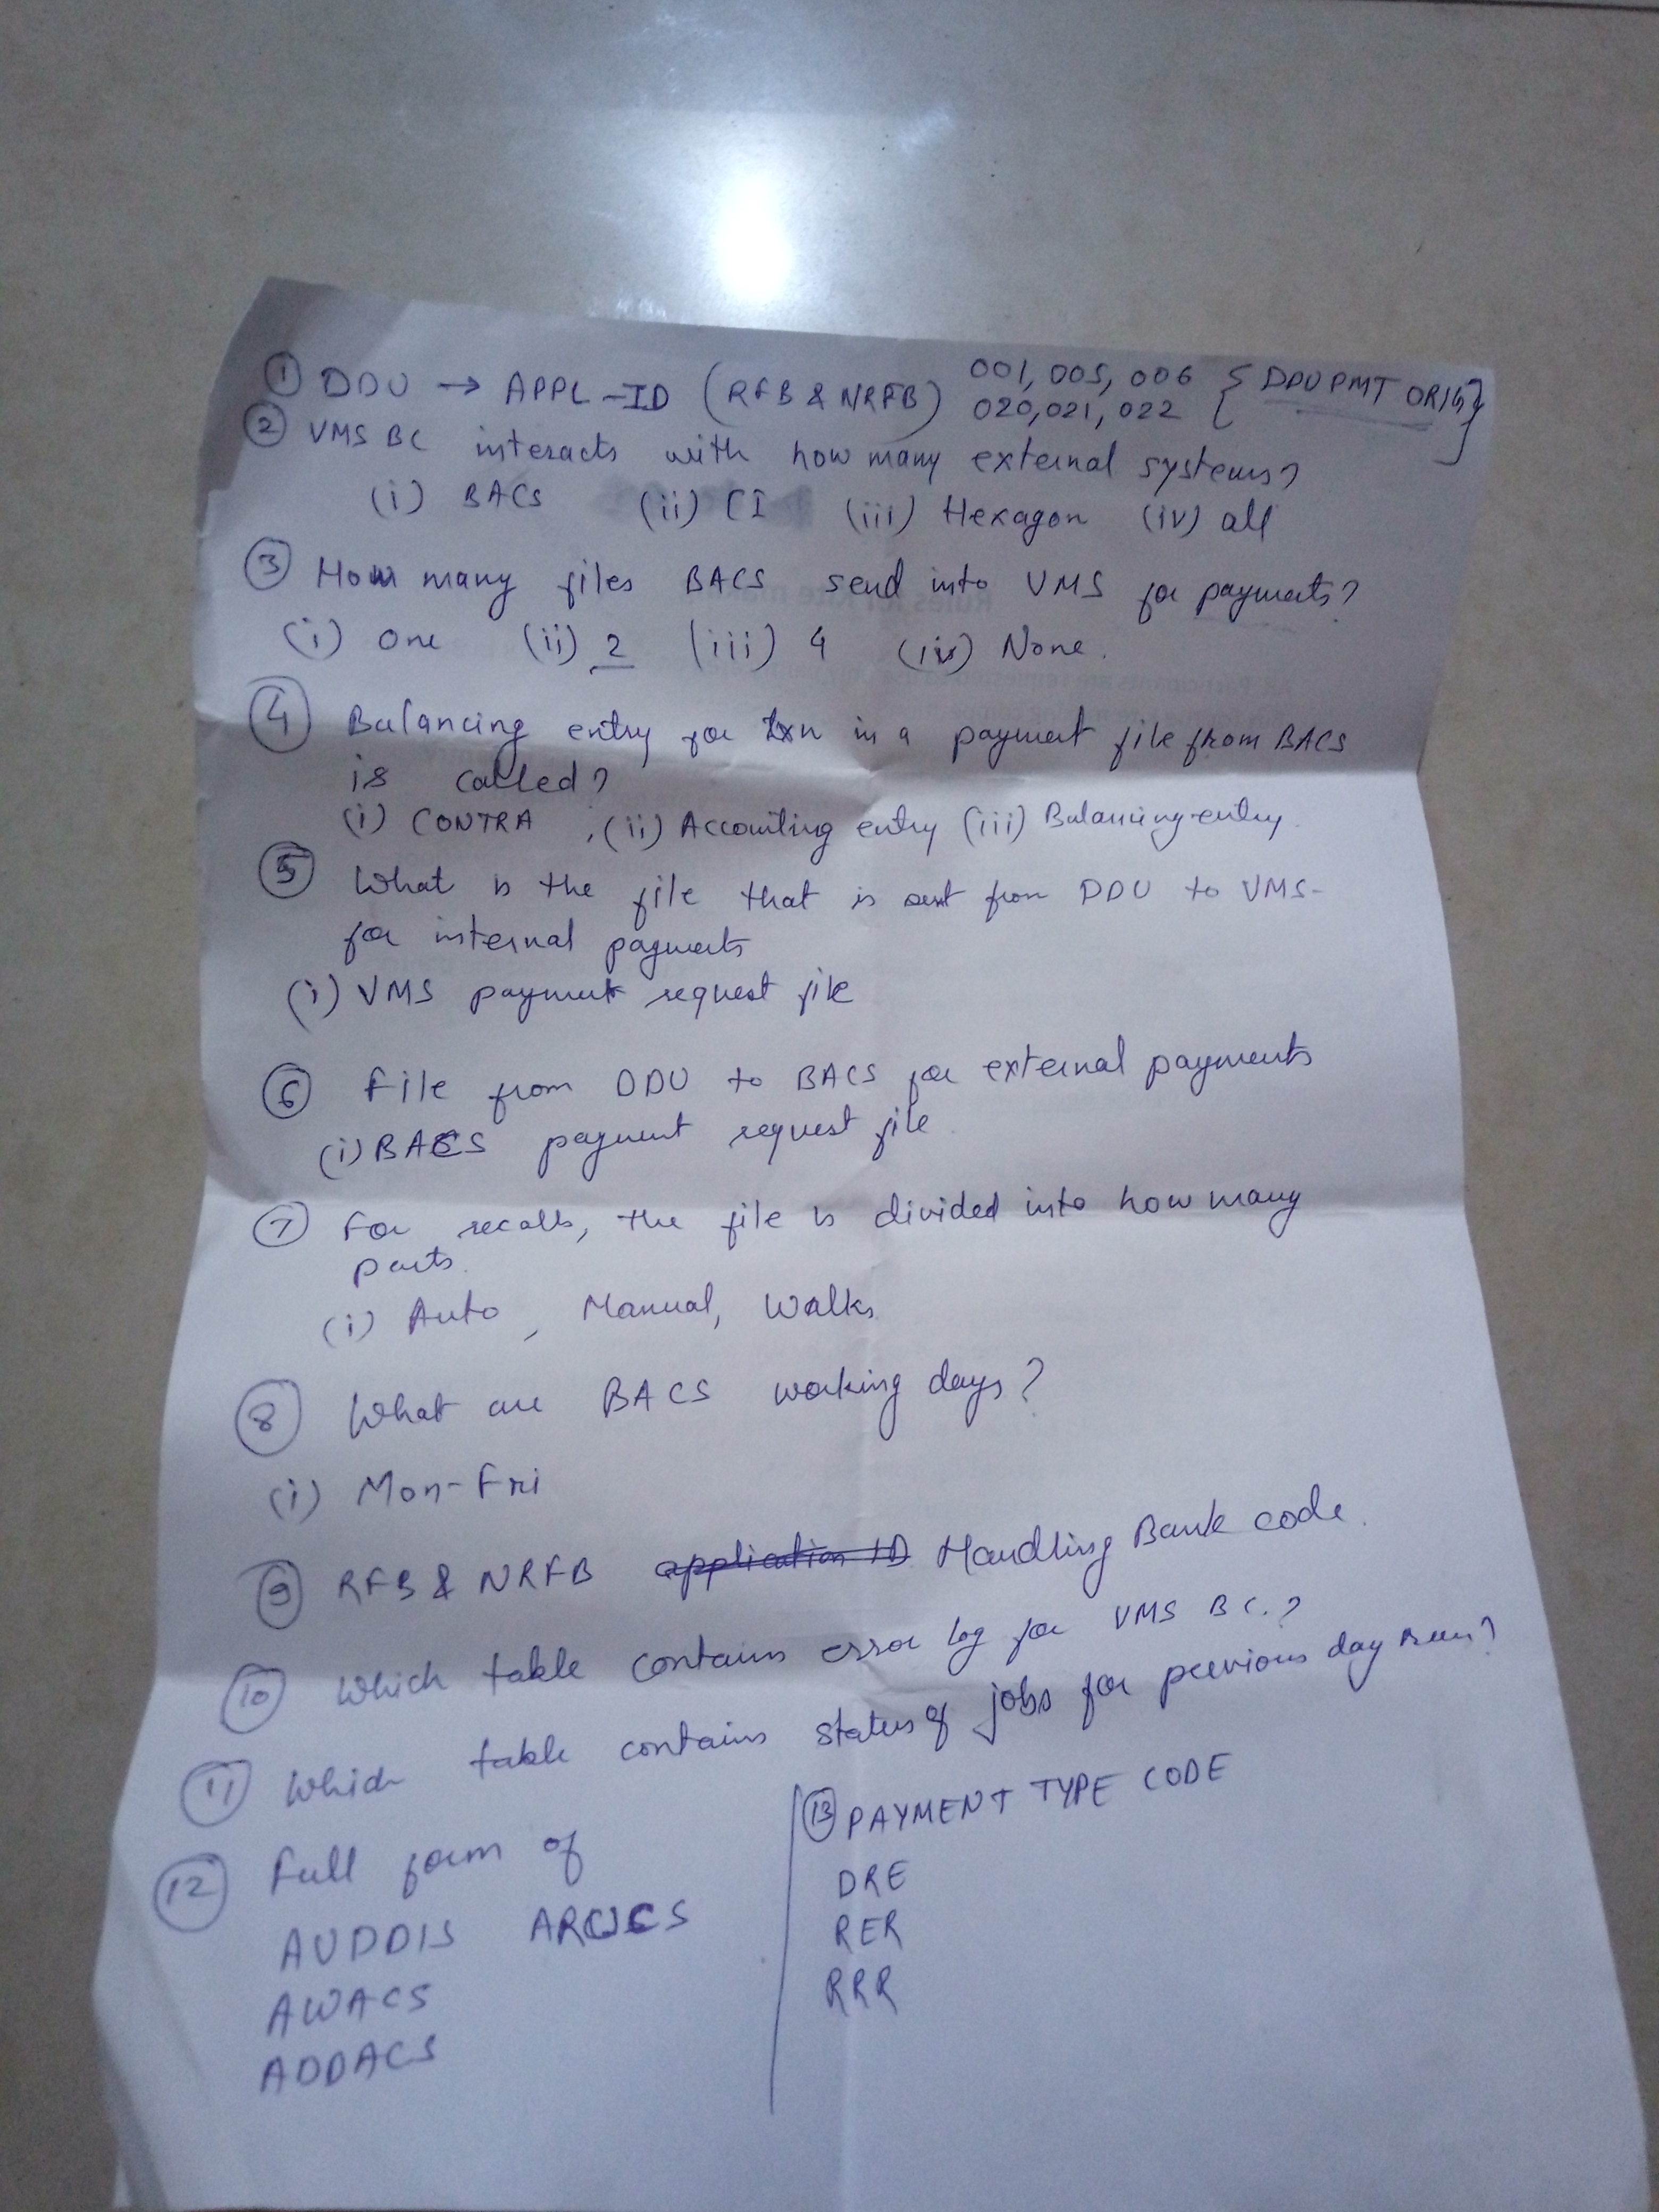 ① DDU → APPL-ID (RFB & NRFB) 001, 005, 006 { DDU PMT ORIG }
020, 021, 022
② VMS BC interacts with how many external systems?
(i) BACS (ii) CI (iii) Hexagon (iv) all
③ How many files BACS send into VMS for payments?
(i) One (ii) 2 (iii) 4 (iv) None.
④ Balancing entry for txn in a payment file from BACS
is called?
(i) CONTRA , (ii) Accounting entry (iii) Balancing entry.
⑤ What is the file that is sent from DDU to VMS-
for internal payments
(i) VMS payment request file
⑥ File from DDU to BACS for external payments
(i) BACS payment request file.
⑦ For recalls, the file is divided into how many
parts.
(i) Auto, Manual, Walks
⑧ What are BACS working days?
(i) Mon-Fri
⑨ RFB & NRFB application ID Handling Bank code.
⑩ Which table contains error log for VMS BC.?
⑪ Which table contains status of jobs for previous day run?
⑫ Full form of
AUDDIS ARUCS
AWACS
ADDACS
⑬ PAYMENT TYPE CODE
DRE
RER
RRR